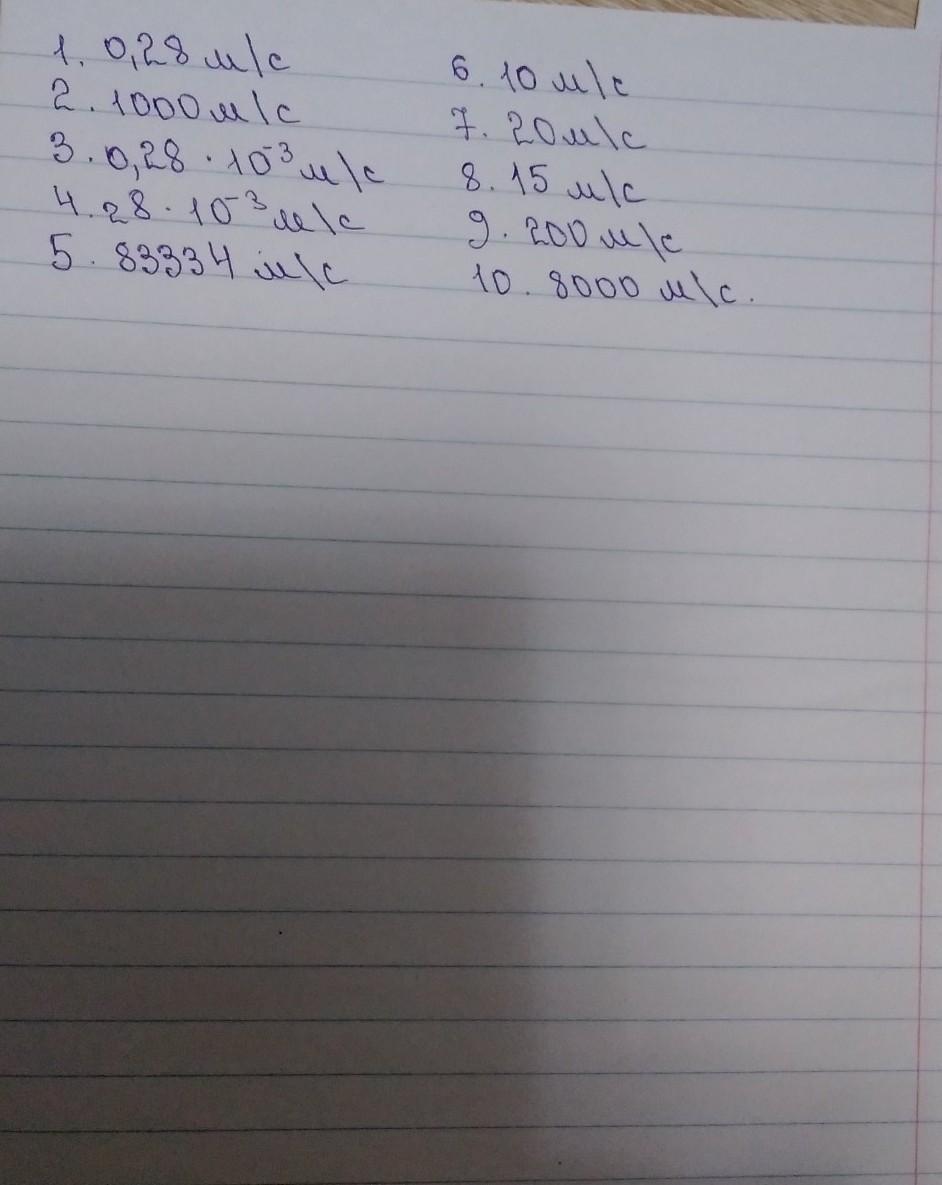 1. 0,28 м/с
2. 1000 м/с
3. 0,28 · 10⁻³ м/с
4. 28 · 10⁻³ м/с
5. 83334 м/с
6. 10 м/с
7. 20 м/с
8. 15 м/с
9. 200 м/с
10. 8000 м/с.